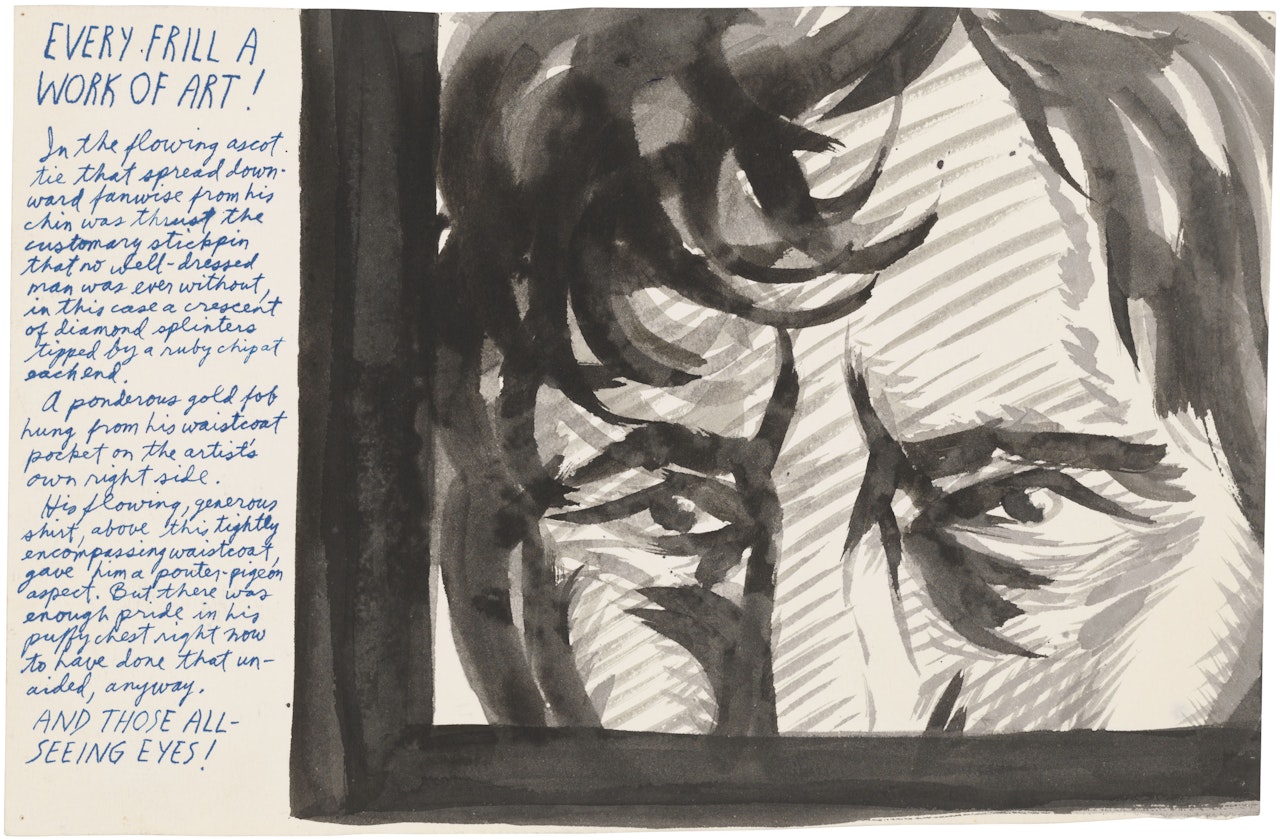 EVERY FRILL A
WORK OF ART!
In the flowing ascot
tie that spread down-
ward fanwise from his
chin was thrust the
customary stickpin
that no well-dressed
man was ever without,
in this case a crescent
of diamond splinters
tipped by a ruby chip at
each end.
A ponderous gold fob
hung from his waistcoat
pocket on the artist's
own right side.
His flowing, generous
shirt, above this tightly
encompassing waistcoat,
gave him a pouter-pigeon
aspect. But there was
enough pride in his
puffy chest right now
to have done that un-
aided, anyway.
AND THOSE ALL-
SEEING EYES!